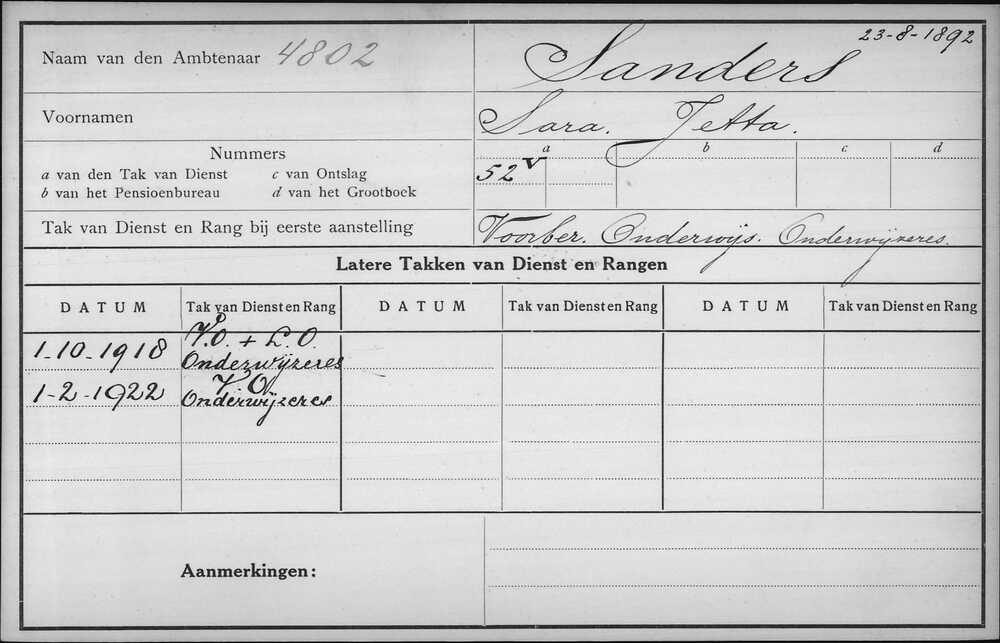 23-8-1892
Naam van den Ambtenaar 4802 Sanders
Voornamen Sara. Jetta.
Nummers a b c d
a van den Tak van Dienst c van Ontslag 52 v
b van het Pensioenbureau d van het Grootboek
Tak van Dienst en Rang bij eerste aanstelling Voorber. Onderwijs. Onderwijzeres.
Latere Takken van Dienst en Rangen
DATUM Tak van Dienst en Rang DATUM Tak van Dienst en Rang DATUM Tak van Dienst en Rang
V.O. + L.O.
1-10-1918 Onderwijzeres
V.O.
1-2-1922 Onderwijzeres
Aanmerkingen: